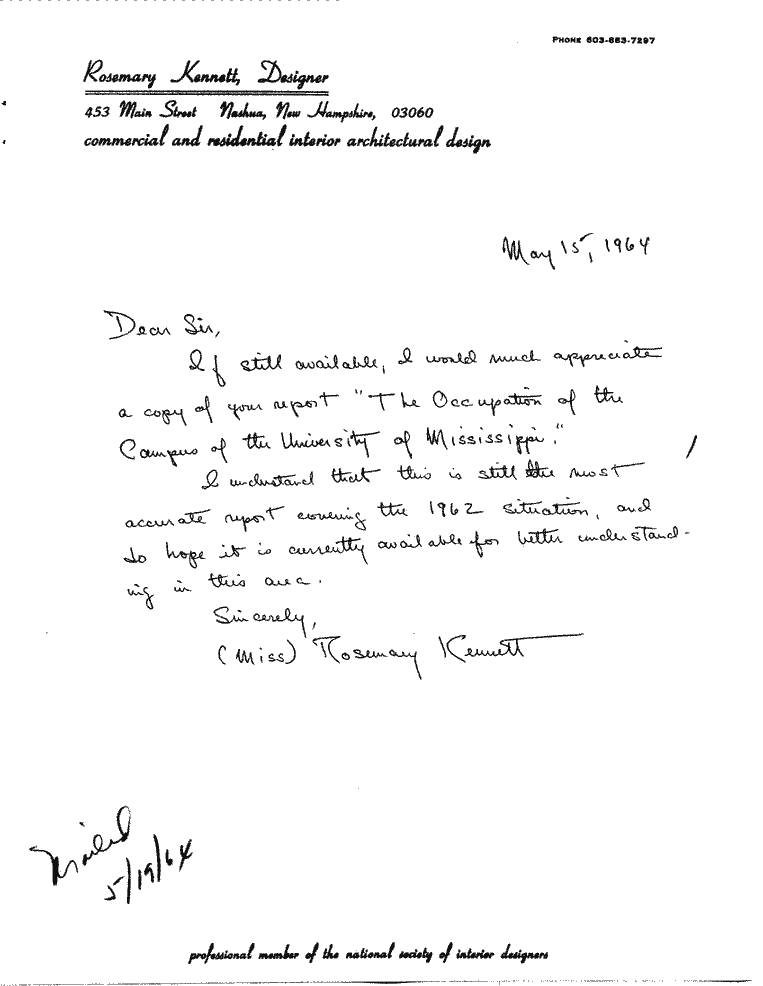 PHONE 603-883-7297
Rosemary Kennett, Designer
453 Main Street Nashua, New Hampshire, 03060
commercial and residential interior architectural design
May 15, 1964
Dear Sir,
If still available, I would much appreciate
a copy of your report "The Occupation of the
Campus of the University of Mississippi."
I understand that this is still the most
accurate report covering the 1962 situation, and
do hope it is currently available for better understand-
ing in this area.
Sincerely,
(Miss) Rosemary Kennett
Mailed
5/19/64
professional member of the national society of interior designers